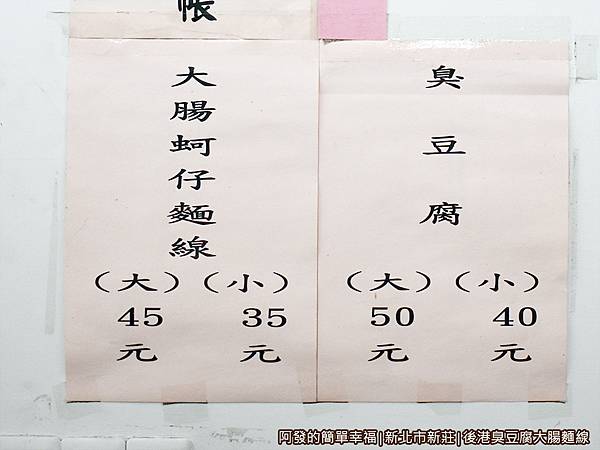 帳
大腸蚵仔麵線
（大）（小）
45 35
元 元
臭豆腐
（大）（小）
50 40
元 元
阿發的簡單幸福|新北市新莊|後港臭豆腐大腸麵線